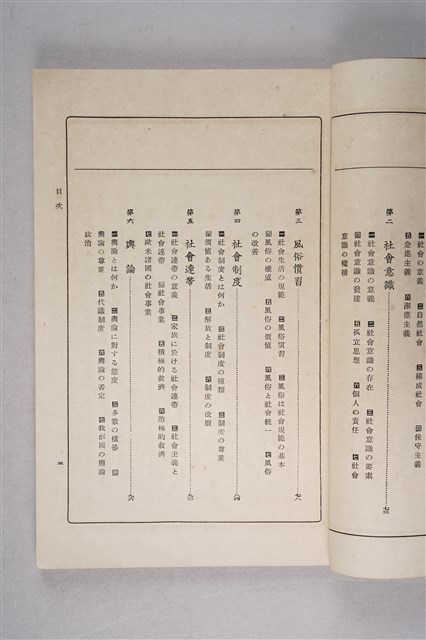 社會の意義　自然社會　構成社會　保守主義
急進主義　漸進主義
第二　社會意識
社會意識の意義　社會意識の存在　社會意識の要素
社會意識の發達　孤立思想　個人の責任　社會
意識の權權
第三　風俗慣習
社會生活の規範　風俗慣習　風俗は社會規範の基本
風俗の權威　風俗の價値　風俗と社會統一　風俗
の改善
第四　社會制度
社會制度とは何か　社會制度の種類　制度の尊重
價値ある生活　解放と制度　制度の改廢
第五　社會連帶
社會連帶の意義　家族に於ける社會連帶　社會主義と
社會連帶　社會事業　積極的救濟　消極的救濟
歐米諸國の社會事業
第六　輿論
輿論とは何か　輿論に對する態度　多數の橫暴
輿論の尊重　代議制度　輿論の否定　我が國の輿論
政治
目次